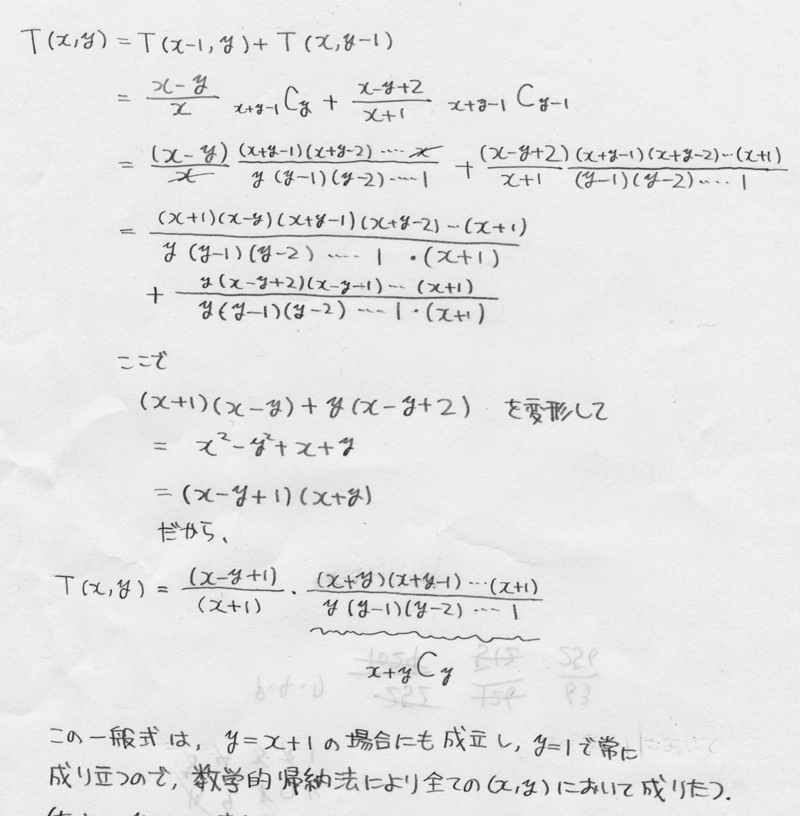 T(x,y) = T(x-1,y) + T(x,y-1)
= \frac{x-y}{x} {}_{x+y-1}C_{y} + \frac{x-y+2}{x+1} {}_{x+y-1}C_{y-1}
= \frac{(x-y)}{x} \frac{(x+y-1)(x+y-2)‥‥x}{y(y-1)(y-2)‥‥1} + \frac{(x-y+2)}{x+1} \frac{(x+y-1)(x+y-2)‥(x+1)}{(y-1)(y-2)‥‥1}
= \frac{(x+1)(x-y)(x+y-1)(x+y-2)‥(x+1)}{y(y-1)(y-2)‥‥1・(x+1)}
+ \frac{y(x-y+2)(x-y-1)‥(x+1)}{y(y-1)(y-2)‥‥1・(x+1)}
ここで
(x+1)(x-y)+y(x-y+2) を変形して
= x²-y²+x+y
= (x-y+1)(x+y)
だから、
T(x,y) = \frac{(x-y+1)}{(x+1)}・\frac{(x+y)(x+y-1)‥(x+1)}{y(y-1)(y-2)‥‥1}
{}_{x+y}C_{y}
この一般式は, y=x+1の場合にも成立し, y=1で常に
成り立つので, 数学的帰納法により全ての(x,y)において成りたつ.